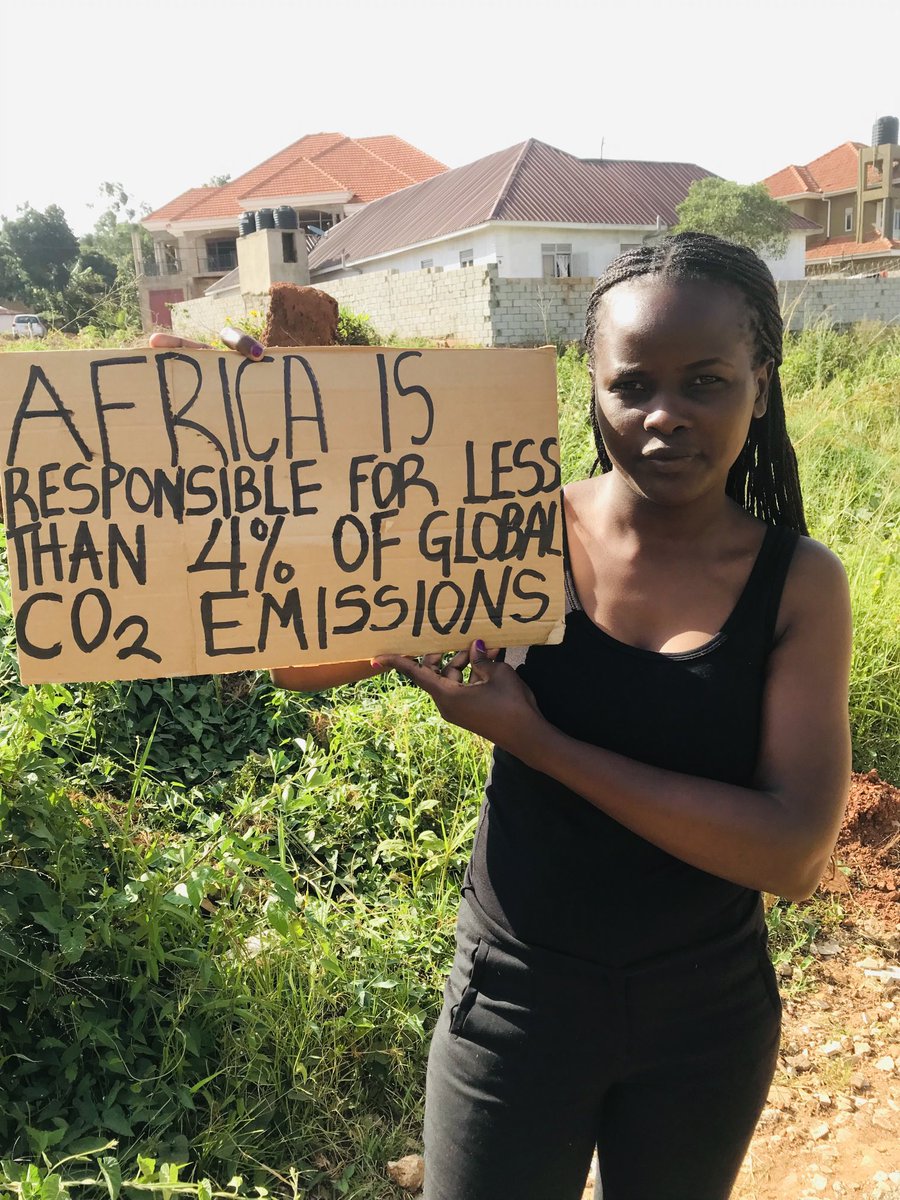 AFRICA IS
RESPONSIBLE FOR LESS
THAN 4% OF GLOBAL
CO2 EMISSIONS